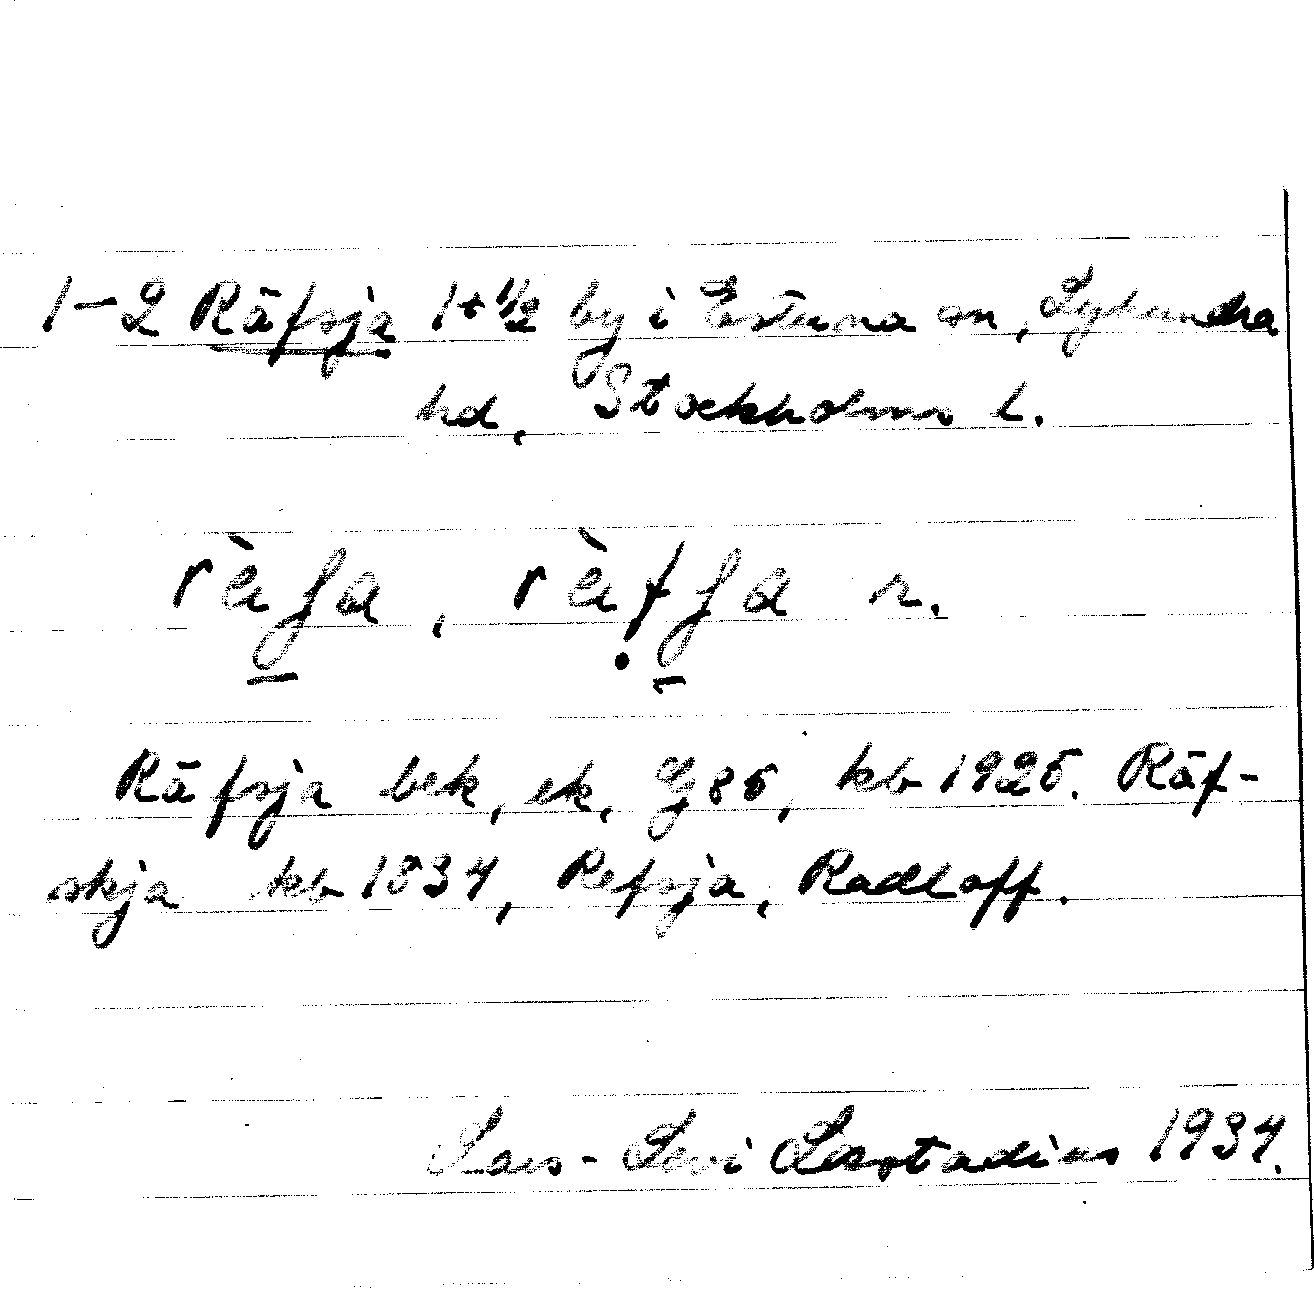 1-2 Räfsja 1+1/2 by i Estuna sn, Lyhundra
hd, Stockholms l.
n.
Räfsja bek, ek, Gj 86, kb 1925. Räf-
skja kb 1834, Refsja, Radloff.
Lars-Levi Læstadius 1934.